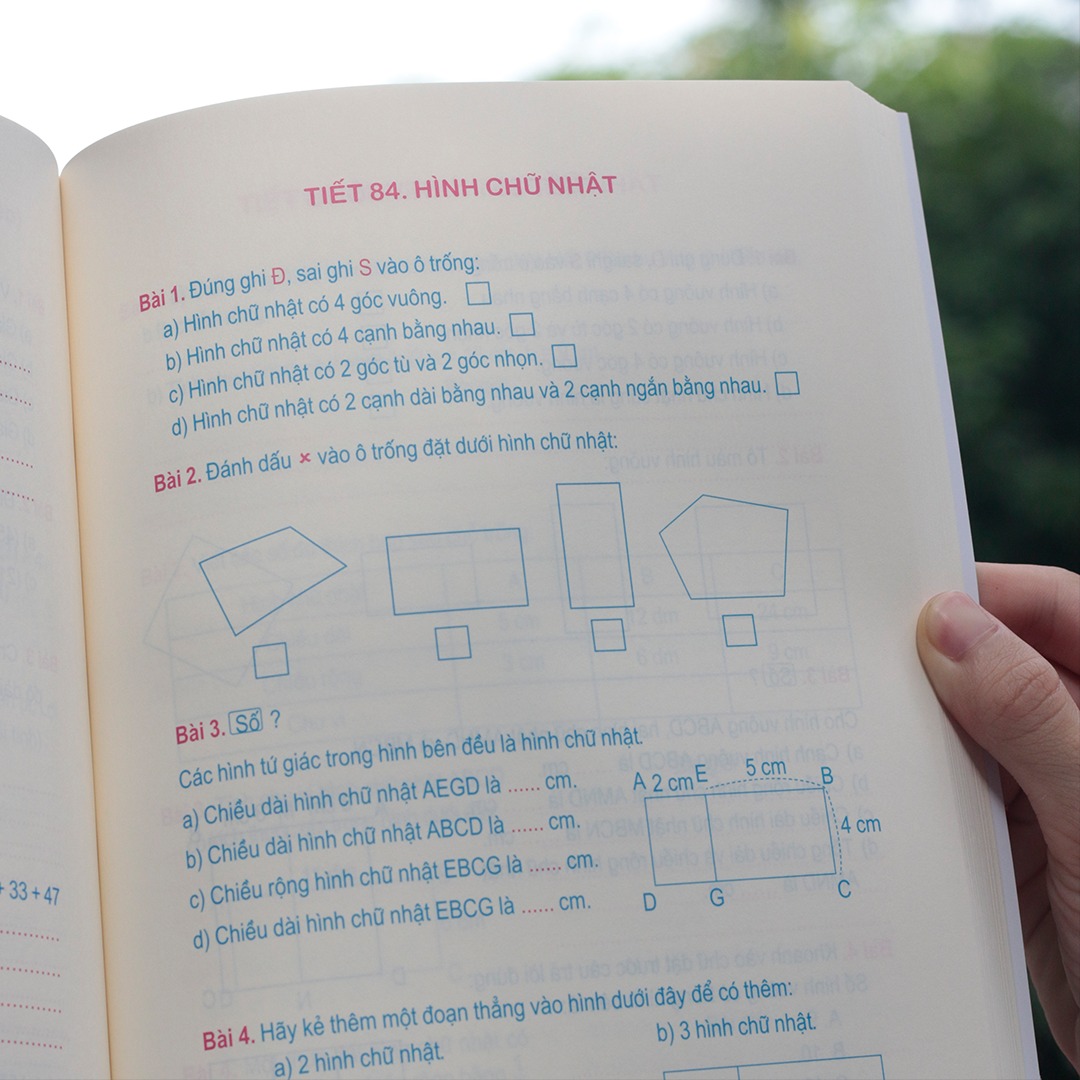 TIẾT 84. HÌNH CHỮ NHẬT
Bài 1. Đúng ghi Đ, sai ghi S vào ô trống:
a) Hình chữ nhật có 4 góc vuông.
b) Hình chữ nhật có 4 cạnh bằng nhau.
c) Hình chữ nhật có 2 góc tù và 2 góc nhọn.
d) Hình chữ nhật có 2 cạnh dài bằng nhau và 2 cạnh ngắn bằng nhau.
Bài 2. Đánh dấu × vào ô trống đặt dưới hình chữ nhật:
Bài 3. Số ?
Các hình tứ giác trong hình bên đều là hình chữ nhật.
a) Chiều dài hình chữ nhật AEGD là ...... cm.
b) Chiều dài hình chữ nhật ABCD là ...... cm.
c) Chiều rộng hình chữ nhật EBCG là ...... cm.
d) Chiều dài hình chữ nhật EBCG là ...... cm.
A 2 cm E 5 cm B
4 cm
D G C
Bài 4. Hãy kẻ thêm một đoạn thẳng vào hình dưới đây để có thêm:
a) 2 hình chữ nhật.
b) 3 hình chữ nhật.
+ 33 + 47